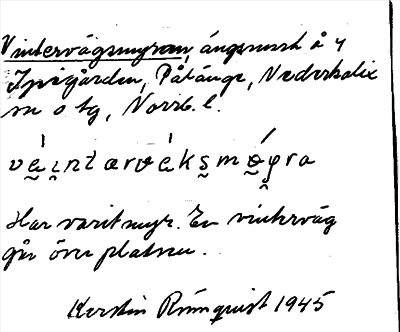 Vintervägsmyran, ängsmark å 4
Jpigården, Påläng, Nederkalix
sn o tg, Norrb. l.
Har varit myr. En vinterväg
går över platsen.
Kerstin Rönnquist 1945